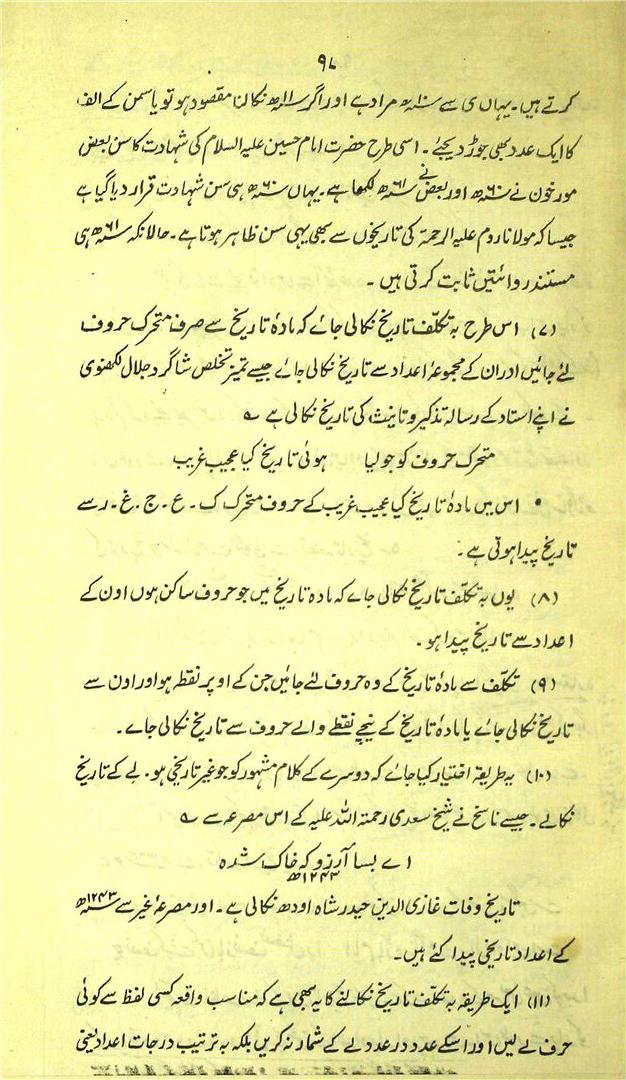 ۹۸
کرتے ہیں۔ یہاں ی سے ۱۰ھ مراد ہے اور اگر ۱۱ھ نکالنا مقصود ہو تو یاسمن کے الف
کا ایک عدد بھی جوڑ دیجئے۔ اسی طرح حضرت امام حسین علیہ السلام کی شہادت کا سن بعض
مورخون نے ۶۰ھ اور بعض نے ۶۱ھ لکھا ہے۔ یہاں ۶۰ھ ہی سن شہادت قرار دیا گیا ہے
جیسا کہ مولانا روم علیہ الرحمۃ کی تاریخوں سے بھی یہی سن ظاہر ہوتا ہے۔ حالانکہ ۶۱ھ ہی
مستند روائتیں ثابت کرتی ہیں۔
(۷) اس طرح بہ تکلّف تاریخ نکالی جائے کہ مادۂ تاریخ سے صرف متحرک حروف
لئے جائیں اور ان کے مجموعۂ اعداد سے تاریخ نکالی جائے جیسے تمیز تخلص شاگرد جلال لکھنوی
نے اپنے استاد کے رسالہ تذکیر و تانیث کی تاریخ نکالی ہے ؎
متحرک حروف کو جو لیا ہوئی تاریخ کیا عجیب غریب
• اس میں مادۂ تاریخ کیا عجیب غریب کے حروف متحرک ک۔ ع۔ ج۔ غ۔ ر سے
تاریخ پیدا ہوتی ہے۔
(۸) یوں بہ تکلّف تاریخ نکالی جاے کہ مادہ تاریخ میں جو حروف ساکن ہوں اون کے
اعداد سے تاریخ پیدا ہو۔
(۹) تکلّف سے مادۂ تاریخ کے وہ حروف لئے جائیں جن کے اوپر نقطہ ہو اور اون سے
تاریخ نکالی جاے یا مادۂ تاریخ کے نیچے نقطے والے حروف سے تاریخ نکالی جاے۔
(۱۰) یہ طریقہ اختیار کیا جائے کہ دوسرے کے کلام مشہور کو جو غیر تاریخی ہو۔ لے کے تاریخ
نکالے۔ جیسے ناسخ نے شیخ سعدی رحمتہ اللہ علیہ کے اس مصرعہ سے ؎
اے بسا آرزو کہ خاک شدہ
۱۲۴۳ھ
تاریخ وفات غازی الدین حیدر شاہ اودھ نکالی ہے۔ اور مصرعۂ غیر سے ۱۲۴۳ھ
کے اعداد تاریخی پیدا کئے ہیں۔
(۱۱) ایک طریقہ بہ تکلّف تاریخ نکالنے کا یہ بھی ہے کہ مناسب واقعہ کسی لفظ سے کوئی
حرف لے لیں اور اسکے عدد در عدد لے کے شمار نہ کریں بلکہ بہ ترتیب درجات اعداد یعنی